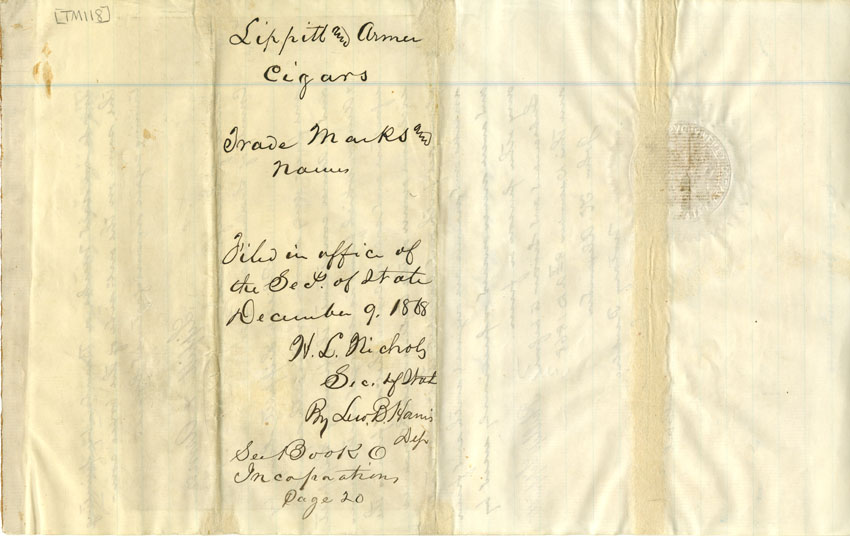 [TM118]
Lippitt and Armer
Cigars
Trade Marks and
Names
Filed in office of
the Sec. of State
December 9. 1868
H. L. Nichols
Sec. of Stat
By Lew. B. Harris
Dep
See Book O
Incorporations
Page 20